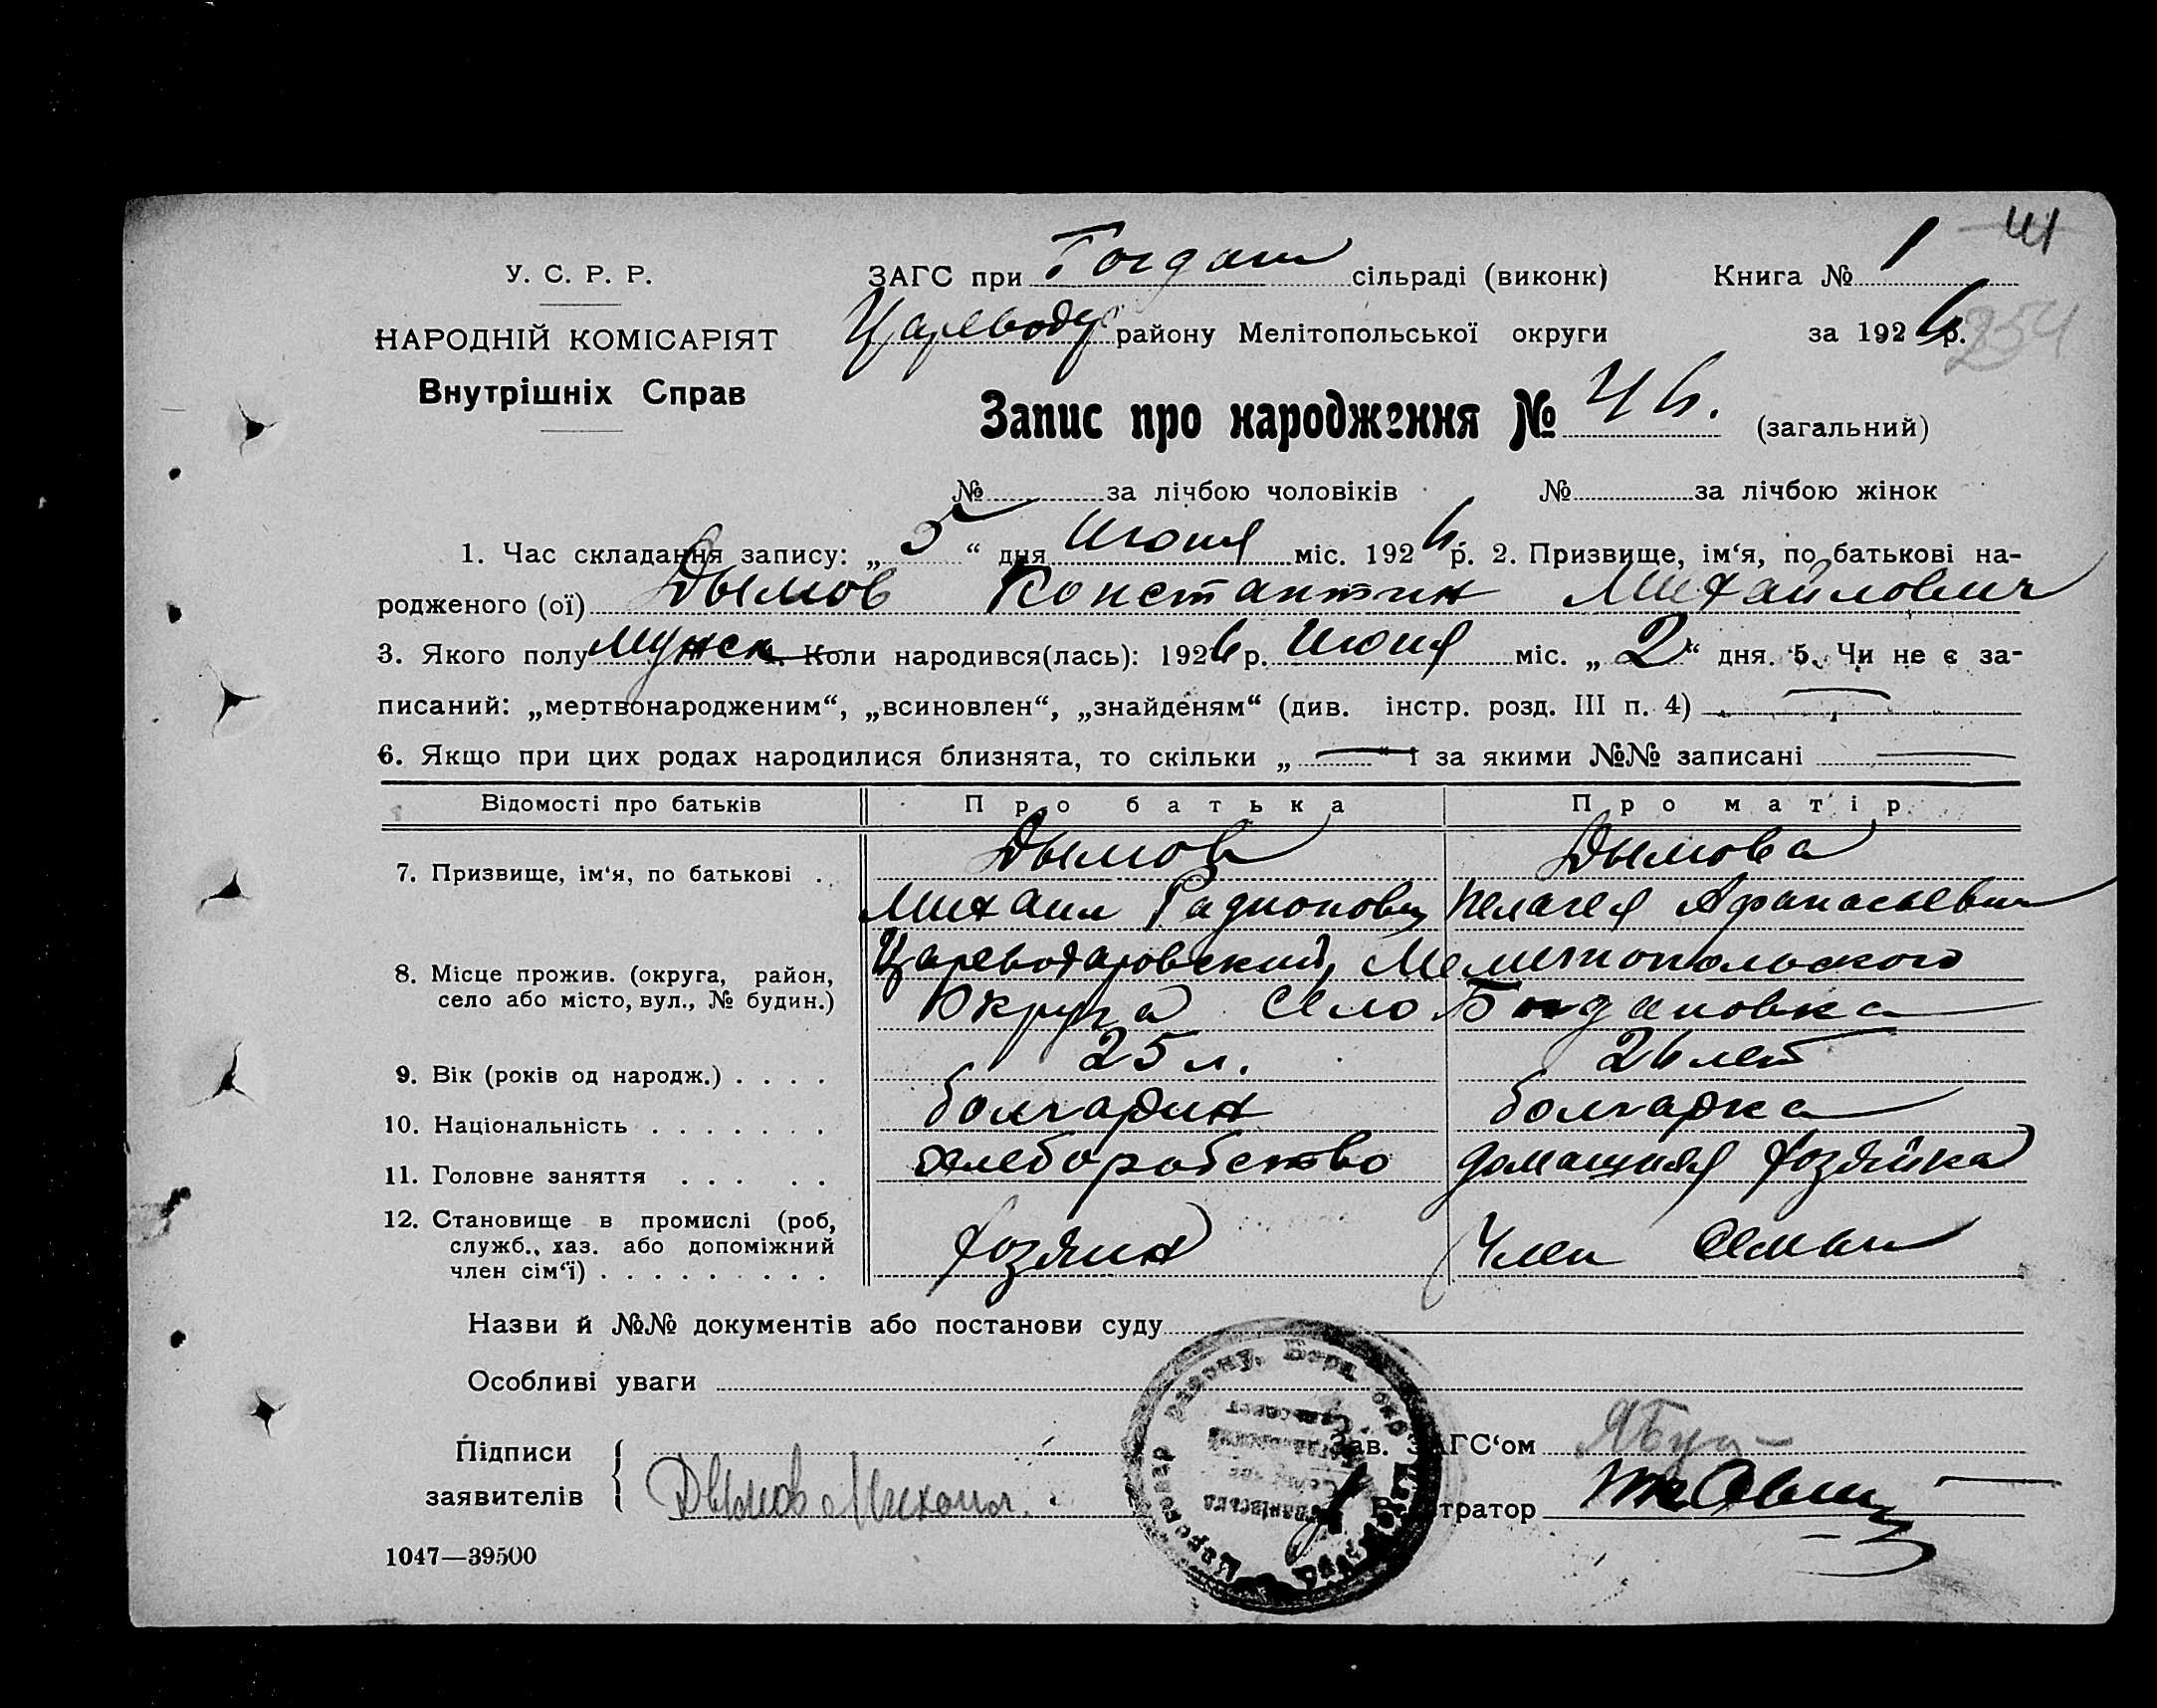 41
У. С. Р. Р.
ЗАГС при Богдан сільраді (виконк)
Книга № 1
НАРОДНІЙ КОМІСАРІЯТ
Царевод районy Мелітопольської округи
за 1926 р.
254
Внутрішніх Справ
Запис про народження № 46. (загальний)
№ за лічбою чоловіків № за лічбою жінок
1. Час складання запису: „5“ дня Июня міс. 1926 р. 2. Призвище, ім‘я, по батькові на-
родженого (ої) Дымов Константин Михайлович
3. Якого полу мужск 4. Коли народився(лась): 1926 р. Июня міс. „2“ дня. 5. Чи не є за-
писаний: „мертвонародженим“, „всиновлен“, „знайденям“ (див. інстр. розд. III п. 4) —
6. Якщо при цих родах народилися близнята, то скільки „—“ і за якими №№ записані —
Відомості про батьків Про батька Про матір
Дымов Дымова
7. Призвище, ім‘я, по батькові .
Михаил Радионович Пелагея Афанасьевна
Цареводаровский, Мелитопольского
8. Місце прожив. (округа, район,
село або місто, вул., № будин.)
Округа Село Богдановка
9. Вік (років од народж.) . . . . 25 л. 26 лет
10. Національність . . . . . . . болгарин болгарка
11. Головне заняття . . . . . хлеборобство домашняя хозяйка
12. Становище в промислі (роб,
служб., хаз. або допоміжний
член сім‘ї) . . . . . . . . . хозяин Член Семьи
Назви й №№ документів або постанови суду
Особливі уваги
Підписи
заявителів
Зав. ЗАГС‘ом
Дымов Михаил.
Реєстратор
1047—39500